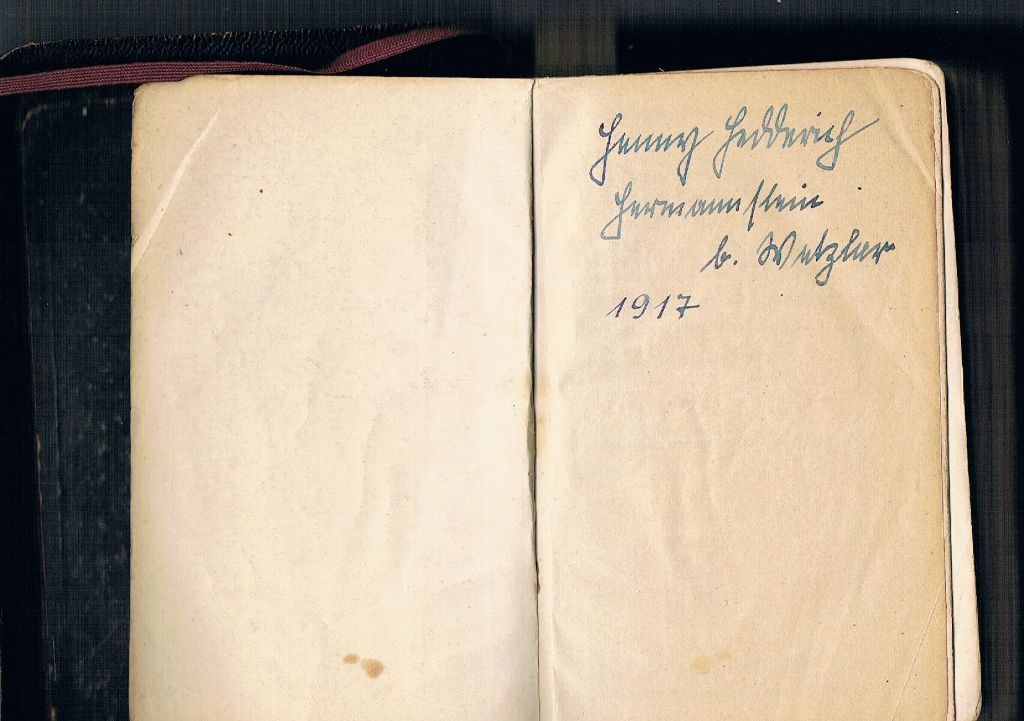 Henny Hedderich
Hermannstein
b. Wetzlar
1917